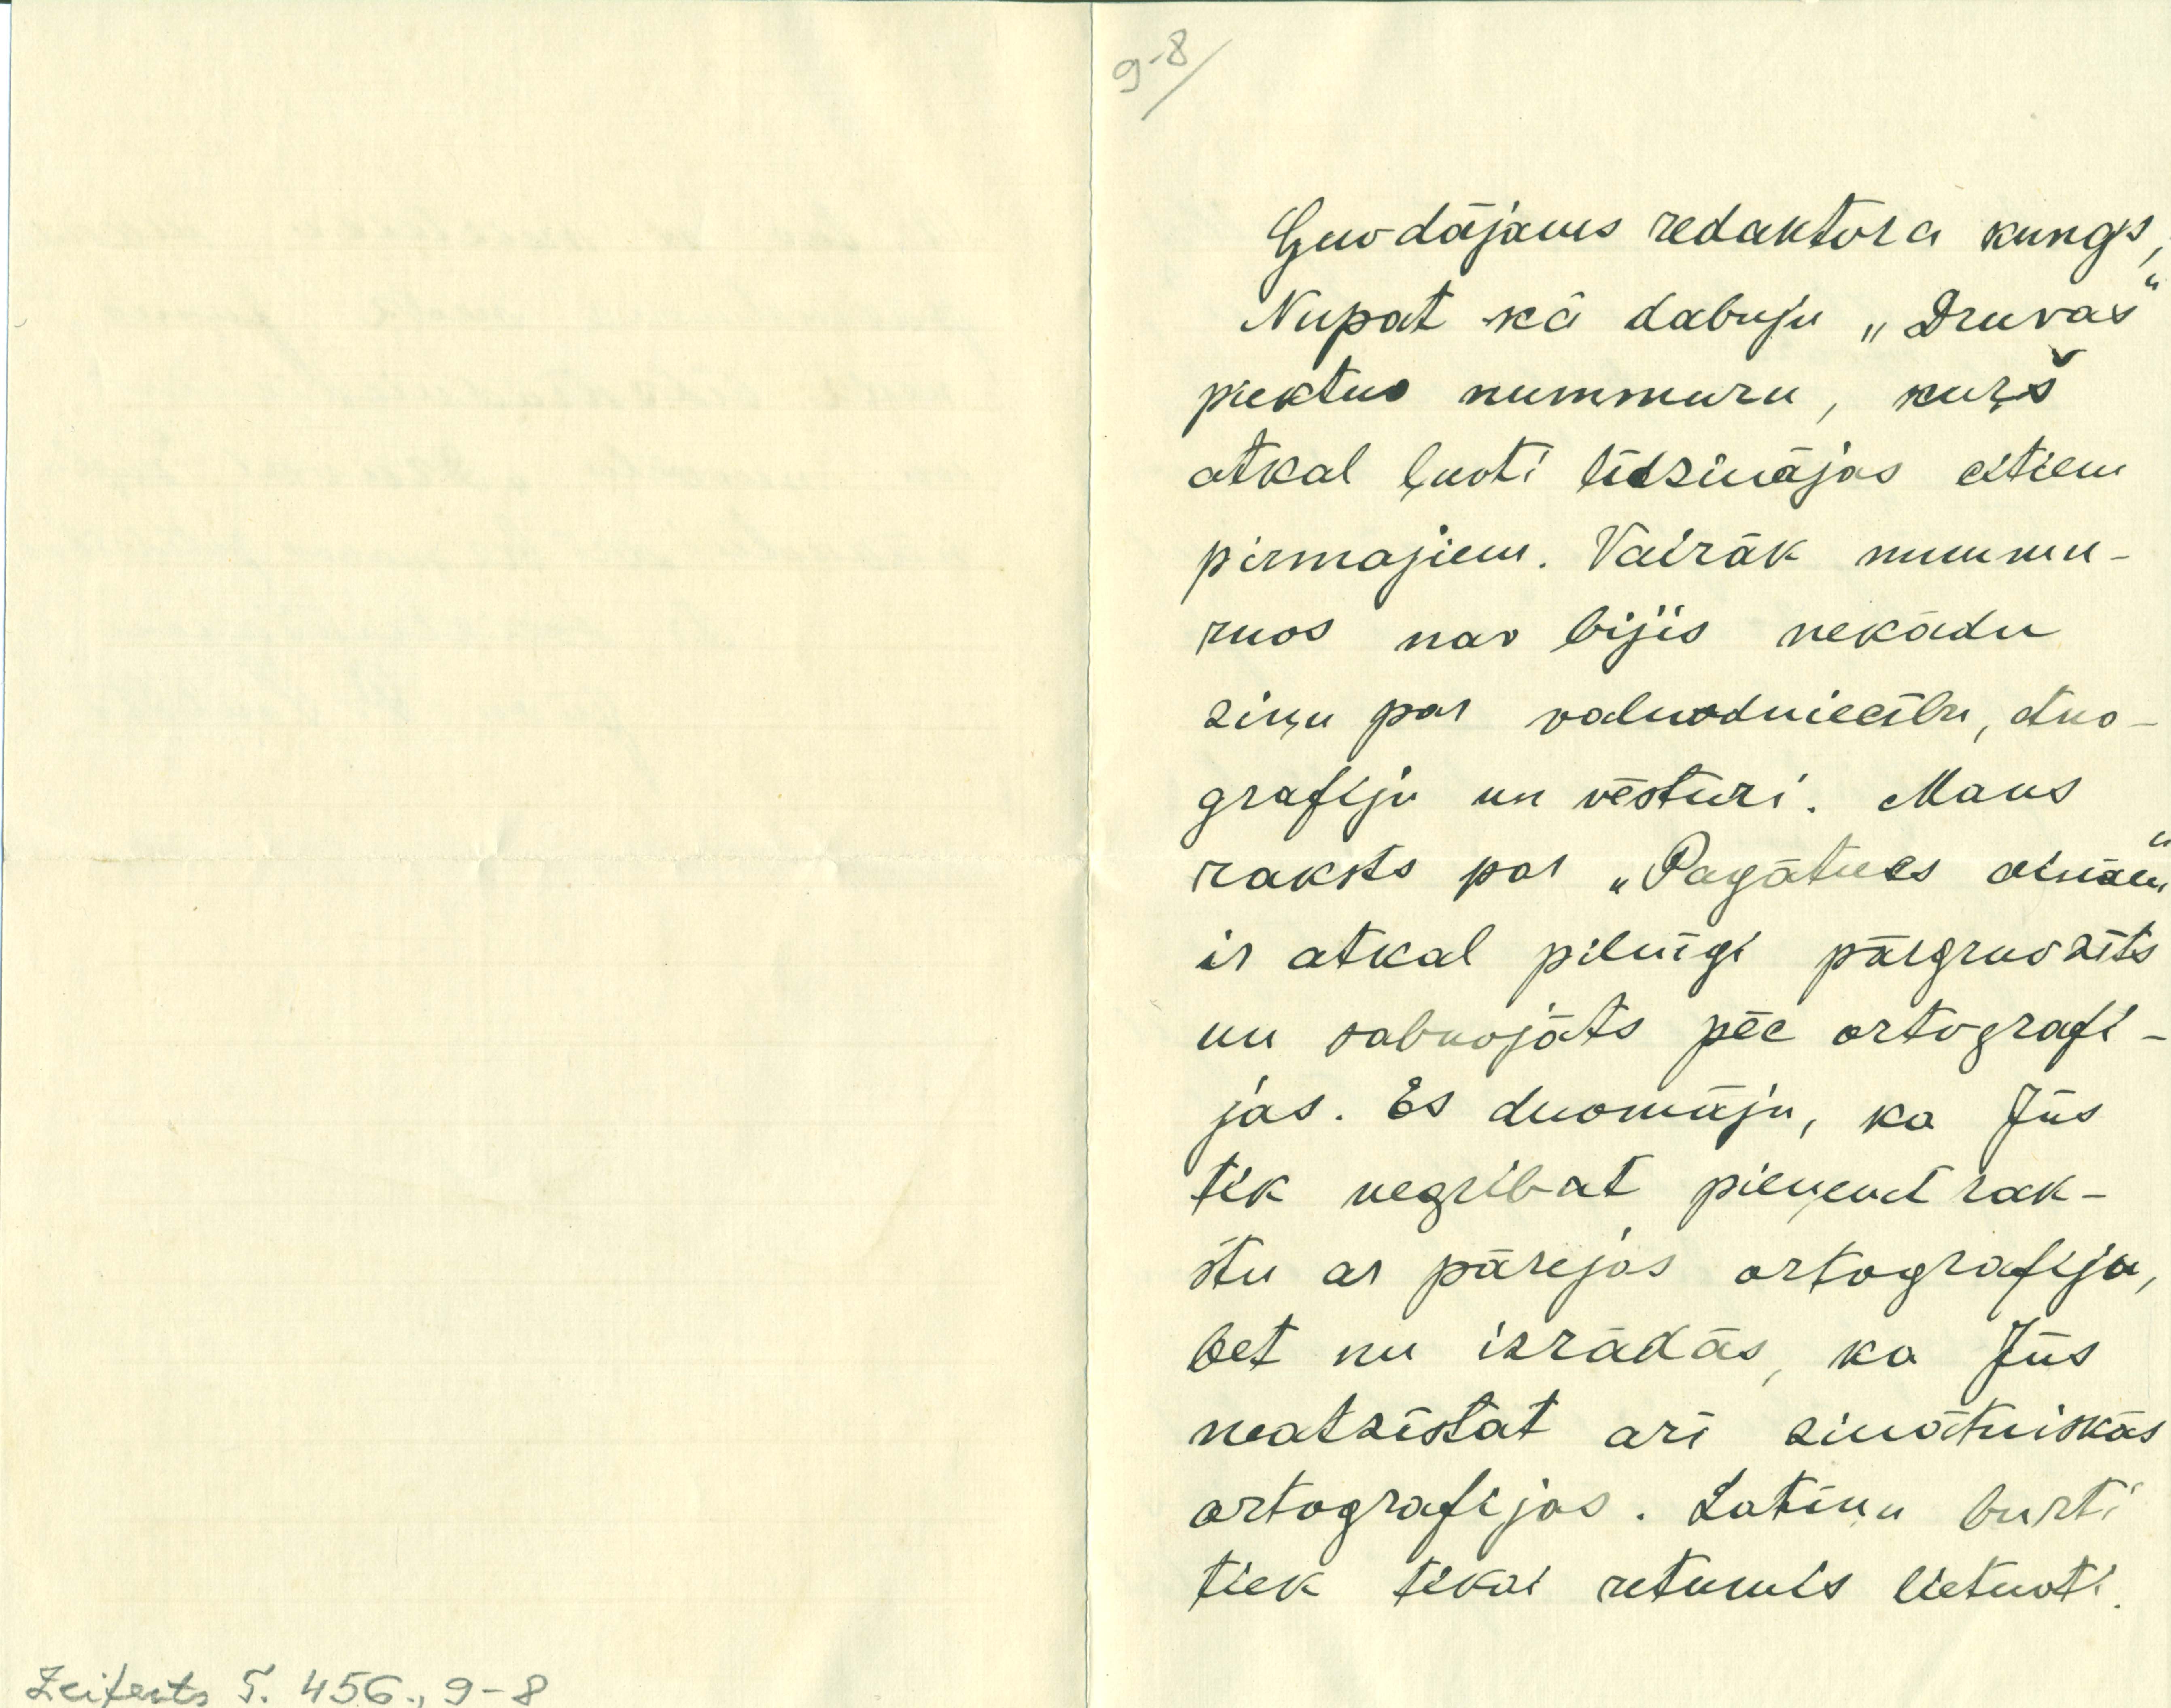 9-8/
Guodājams redaktora kungs,
Nupat kā dabuju „Druvas“
piektuo nummuru, kuŗš
atkal ļuoti līdzinājas citiem
pirmajiem. Vairāk nummu-
ruos nav bijis nekādu
ziņu par valuodniecību, etno-
grafiju un vēsturi. Mans
raksts par „Pagātnes ainām“
ir atkal pilnīgi pārgruozīts
un sabuojāts pēc ortografi-
jas. Es duomāju, ka Jūs
tik negribat pieņemt rak-
stu ar pārejas ortografiju,
bet nu izrādās, ka Jūs
neatzīstat arī zinātniskās
ortografijas. Latīņu burti
tiek tikai retumis lietuoti.
Zeiferts T. 456., 9-8